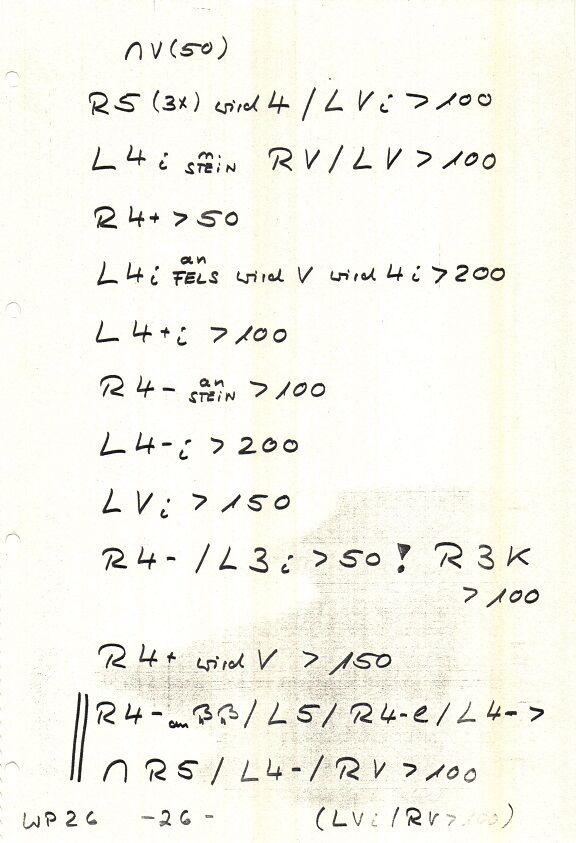 ∩ V (50)
R5 (3x) wird 4 / L Vi > 100
L4i m STEIN RV / LV > 100
R4+ > 50
L4i an FELS wird V wird 4i > 200
L4+i > 100
R4- an STEIN > 100
L4-i > 200
LVi > 150
R4- / L3i > 50 ! R3K
> 100
R4+ wird V > 150
R4- an / L5 / R4-e / L4- >
∩ R5 / L4- / RV > 100
WP26 -26- (LVi / RV > 100)